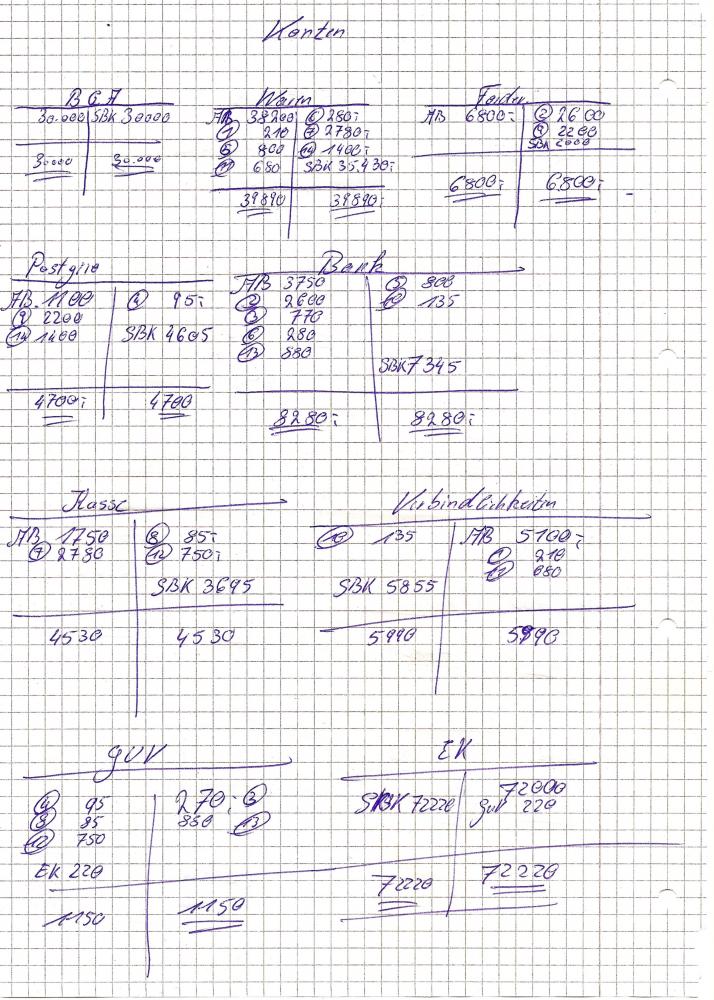 Konten
BGA
30.000 SBK 30000
30.000 30.000
Waren
AB 38200 ⑥ 280,-
① 210 ⑦ 2780,-
⑤ 800 ⑭ 1400,-
⑪ 680 SBK 35.430,-
39890 39890,-
Forder.
AB 6800,- ② 2600
⑨ 2200
SBK 2000
6800,- 6800,-
Postgiro
AB 1100 ④ 95,-
⑨ 2200
⑭ 1400 SBK 4605
4700,- 4700
Bank
AB 3750 ⑤ 800
② 2600 ⑩ 135
③ 770
⑥ 280
⑬ 880
SBK 7345
8280,- 8280,-
Kasse
AB 1750 ⑧ 85,-
⑦ 2780 ⑫ 750,-
SBK 3695
4530 4530
Verbindlichkeiten
⑩ 135 AB 5100,-
① 210
⑪ 680
SBK 5855
5990 5990
GUV
④ 95 270,- ③
⑧ 85 880 ⑬
⑫ 750
EK 220
1150 1150
EK
72000
SBK 72220 GuV 220
72220 72220